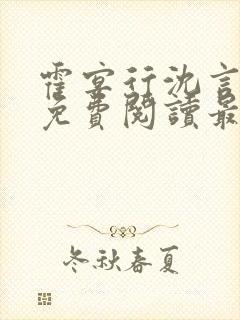 霍宴行沈言
免費閱讀最
冬秋春夏